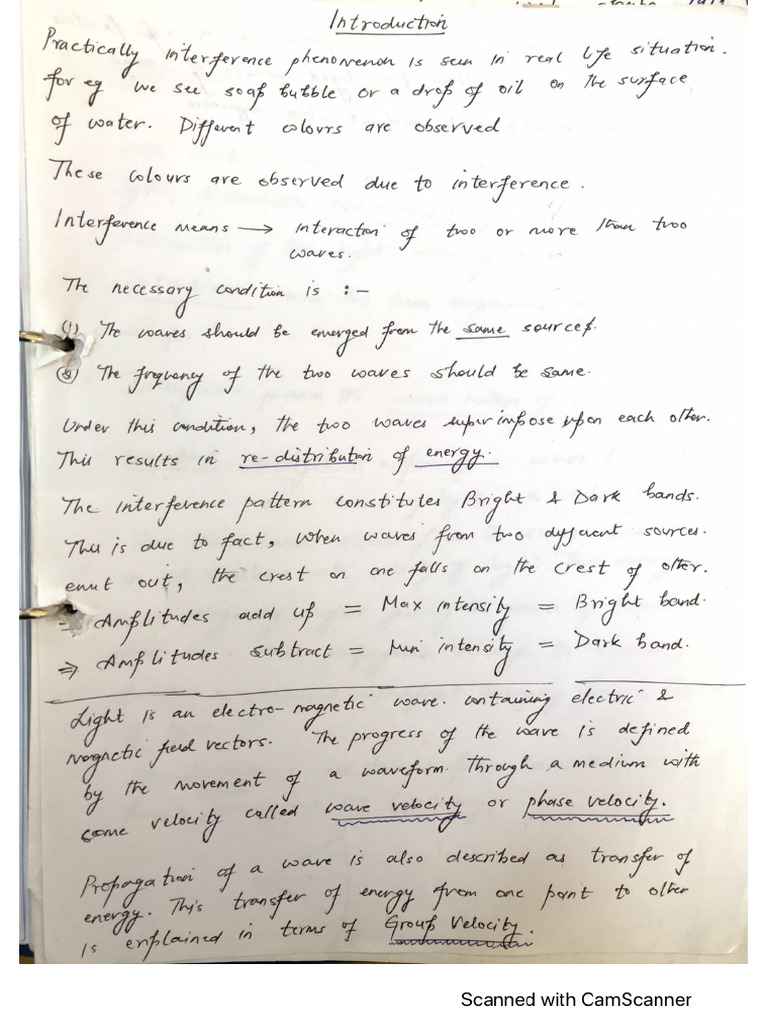 Introduction
Practically interference phenomenon is seen in real life situation.
for eg we see soap bubble or a drop of oil on the surface
of water. Different colours are observed
These colours are observed due to interference.
Interference means → interaction of two or more than two
waves.
The necessary condition is :-
(1) The waves should be emerged from the same source.
(2) The frequency of the two waves should be same.
Under this condition, the two waves superimpose upon each other.
This results in re-distribution of energy.
The interference pattern constitutes Bright & Dark bands.
This is due to fact, when waves from two different sources.
emit out, the crest on one falls on the crest of other.
⇒ Amplitudes add up = Max intensity = Bright band.
⇒ Amplitudes subtract = Min intensity = Dark band.
Light is an electro-magnetic wave. containing electric &
magnetic field vectors. The progress of the wave is defined
by the movement of a waveform. Through a medium with
some velocity called wave velocity or phase velocity.
Propagation of a wave is also described as transfer of
energy. This transfer of energy from one point to other
is explained in terms of Group Velocity.
Scanned with CamScanner